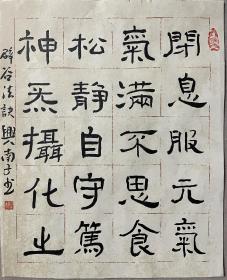 閉息服元氣
氣滿不思食
松靜自守篤
神炁攝化之
辟谷法訣 興南子書